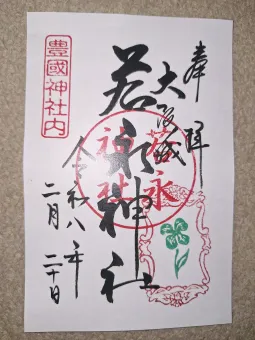 奉拝
大阪城
若永神社
若永
神社
令和八年
二月二十日
豊國神社内